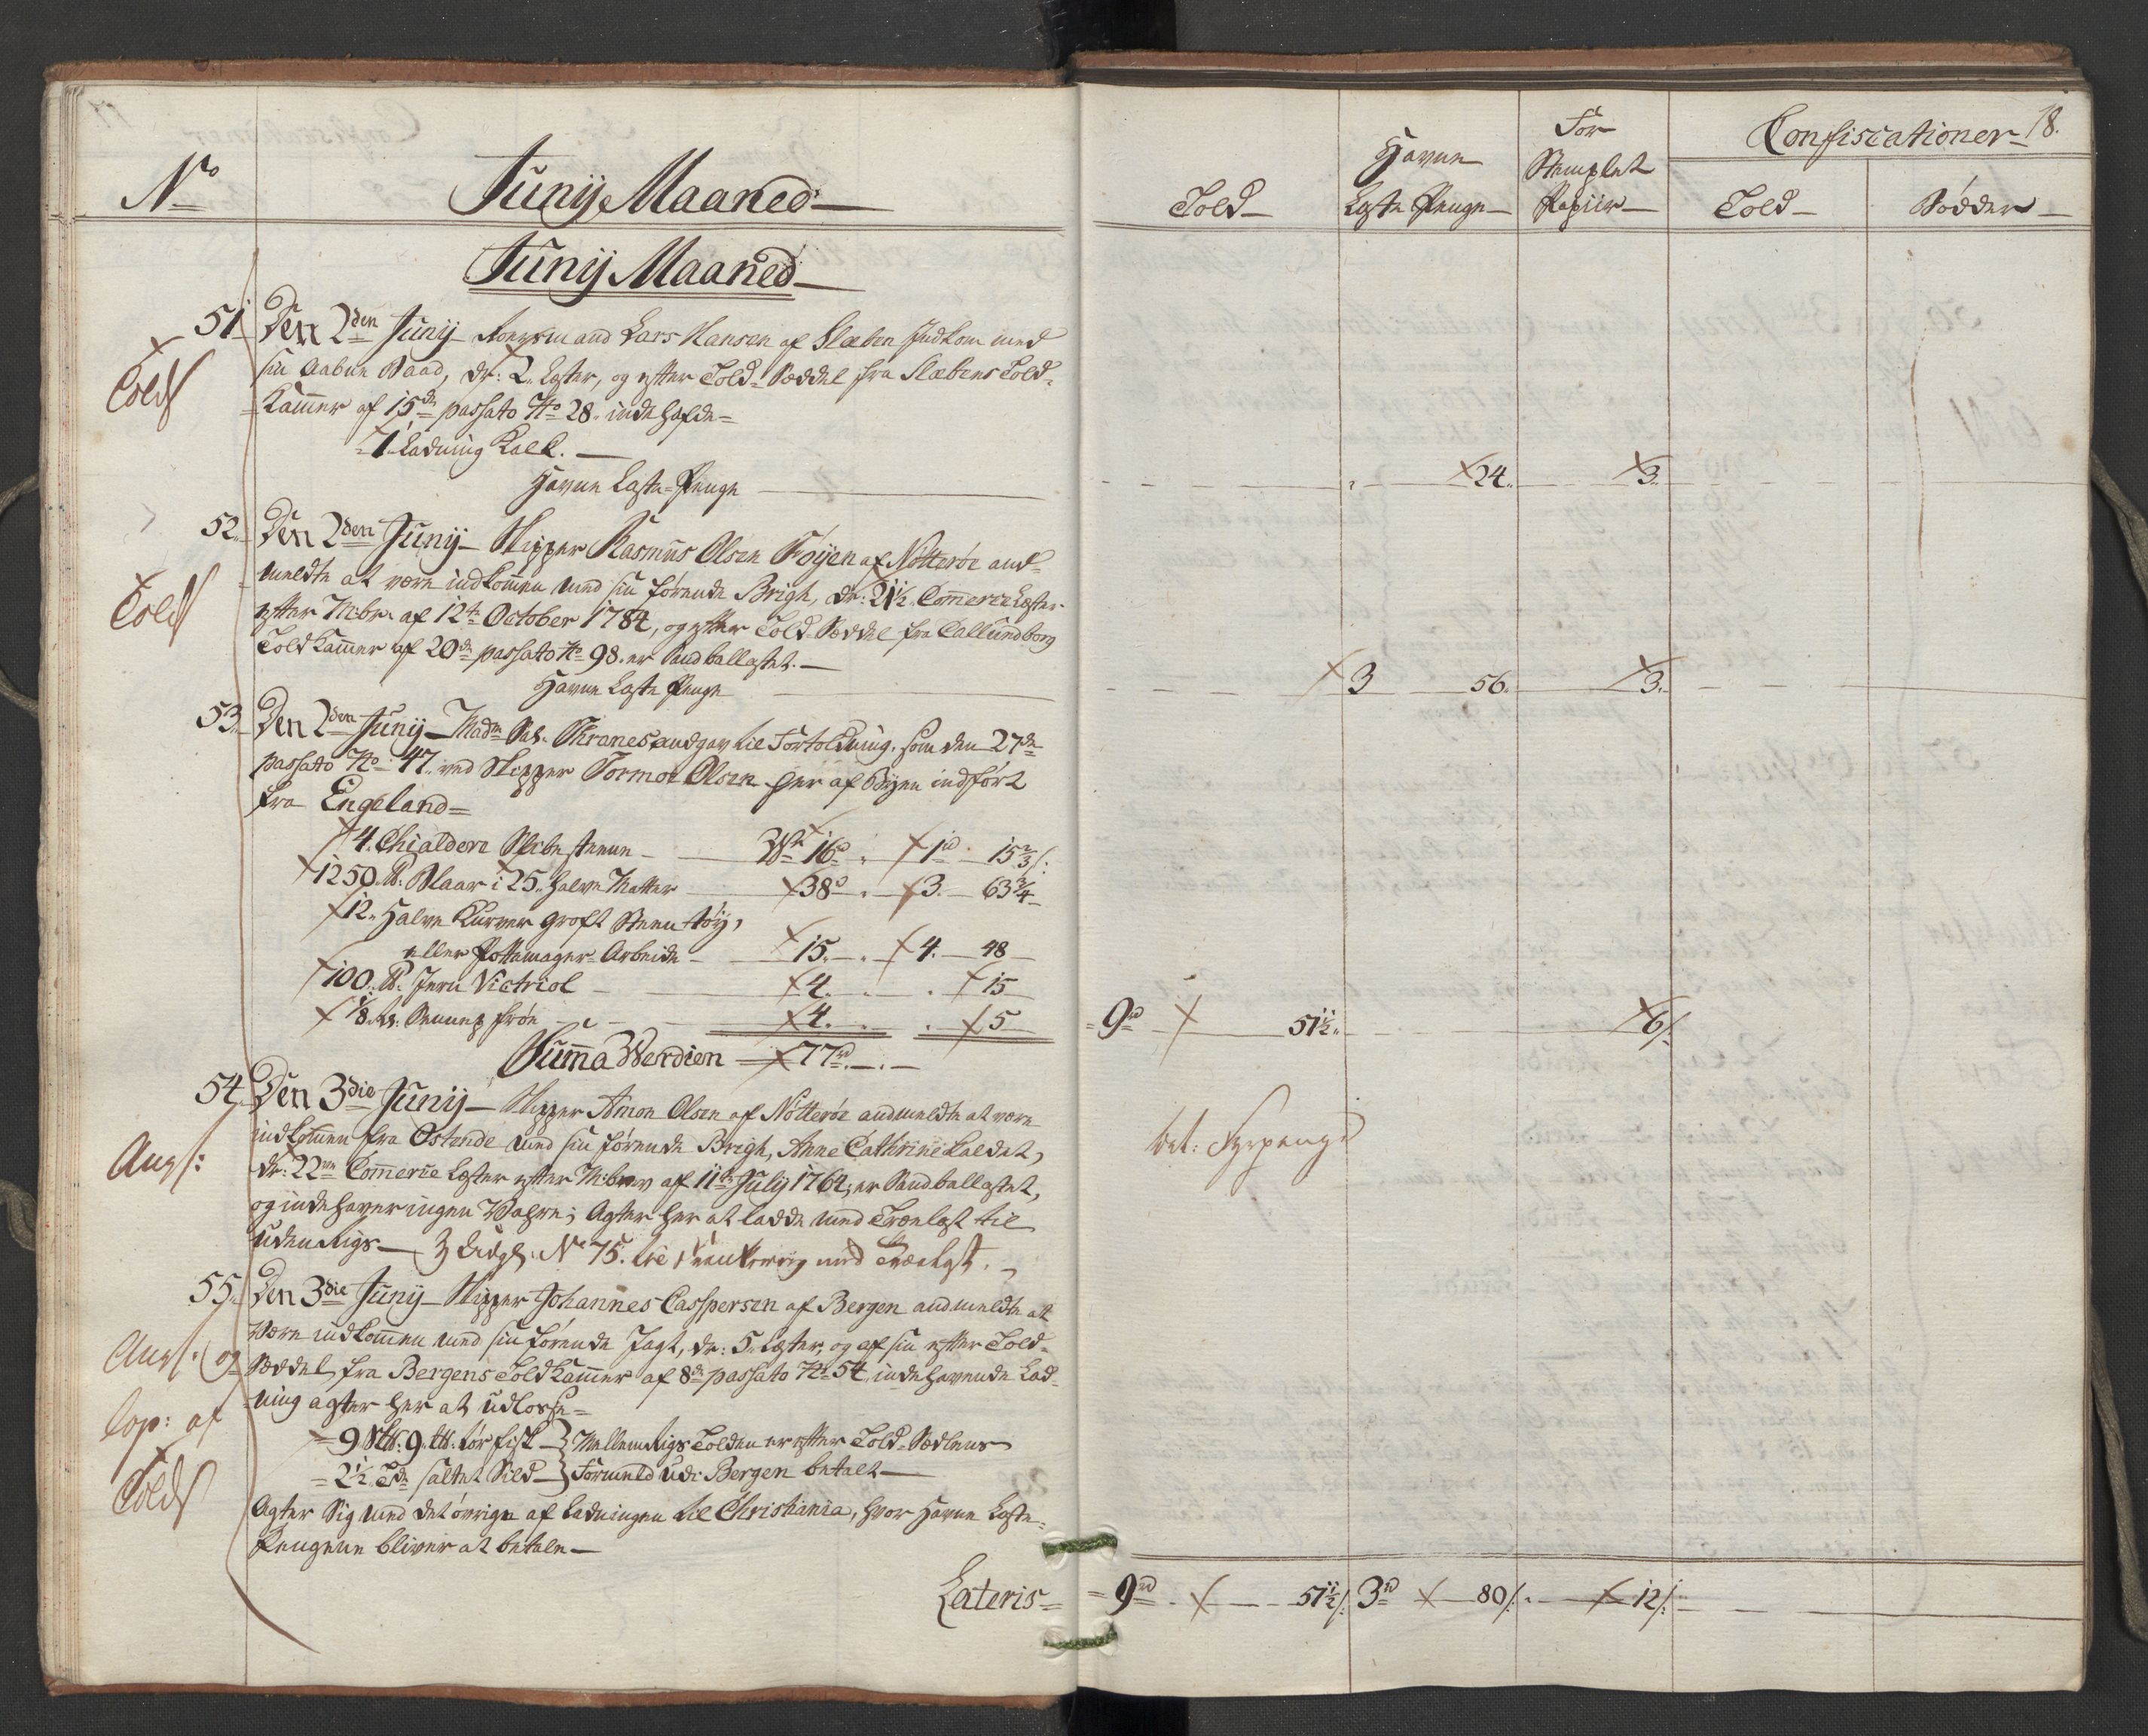 No
Junij Maaned
Junij Maaned
51 Den 2den Junij Lars Hansen af Slæben Indkom med
sin aabne Baad, dr: 2 Læster, og efter Told-Seddel fra Slæbens Told-
Kammer af 15de passato No 28. indehafde
1 Ladning Kalk.
Havne Læste-Penge
Tolds
52. Den 2den Junij Skipper Rasmus Olsen Føyen af Nøtterøe and-
meldte at være indkommen med sin førende Brigh, dr: 21½ Commerce Læster
efter M:br: af 12te October 1784, og efter Told-Seddel fra Callundborg
Told Kammer af 20de passato No 98. er Sandballastet.
Havne Læste Penge
Tolds
53. Den 2den Junij Madm Sal. Thranes andgav til Fortoldning, som den 27de
passato No 47. ved Skipper Tormoe Olsen her af Byen indført
fra Engeland
4. Chialdere Slibesteene 16 1rd 15⅔ s:
1250 ℔. Blaar i 25. halve Matter 38 3. 63¾
12. Halve Kurver groft Steentøy,
eller Pottemager-Arbeide 15. 4. 48
100. ℔. Jern Victriol 4. 15
⅛ Senneps frøe 4. 5
Summa Werdien 77rd
54. Den 3die Junij Skipper Amon Olsen af Nøtterøe andmeldte at være
indkommen fra Ostende med sin førende Brigh, Anne Cathrine kaldet,
dr: 22 Commerce Læster efter M:brev af 11te July 1764, er Sandballastet,
og indehaver ingen Wahre; Agter her at ladde med Trælast til
udenrigs Udg: No 75. med Trælast.
Ang:
55. Den 3die Junij Skipper Johannes Caspersen af Bergen andmeldte at
være indkommen med sin førende Jagt, dr: 5. Læster, og af sin efter Told-
Seddel fra Bergens Told Kammer af 8de passato No 54, indehavende Lad-
ning agter her at udlosse
9 9. tør fisk } Mellemrigs Tolden er efter Told-Sedlens
2½ Tde saltet Sild } Formeld udi Bergen betalt
Agter Sig med det øvrige af ladningen til Christiania, hvor Havne Læste-
Pengene bliver at betale
Ang: og
Cop: af
Tolds
Lateris
18.
Told
Havne
Læste Penge
For
Stemplet
Papiir
Confiscationer
Told
Bødder
24. 3.
3 56. 3.
9rd 51½. 6 s.
bet: Fyrpenge
9rd 51½ s: 3rd 80 s. 12 s: